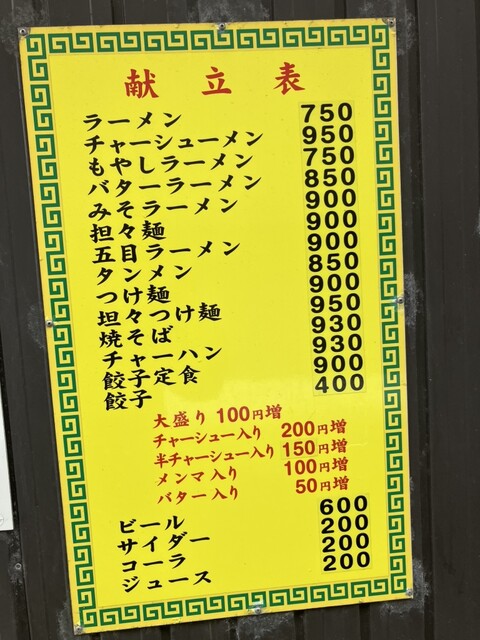 献立表
ラーメン 750
チャーシューメン 950
もやしラーメン 750
バターラーメン 850
みそラーメン 900
担々麺 900
五目ラーメン 900
タンメン 850
つけ麺 900
坦々つけ麺 950
焼そば 930
チャーハン 930
餃子定食 900
餃子 400
大盛り 100円増
チャーシュー入り 200円増
半チャーシュー入り 150円増
メンマ入り 100円増
バター入り 50円増
ビール 600
サイダー 200
コーラ 200
ジュース 200